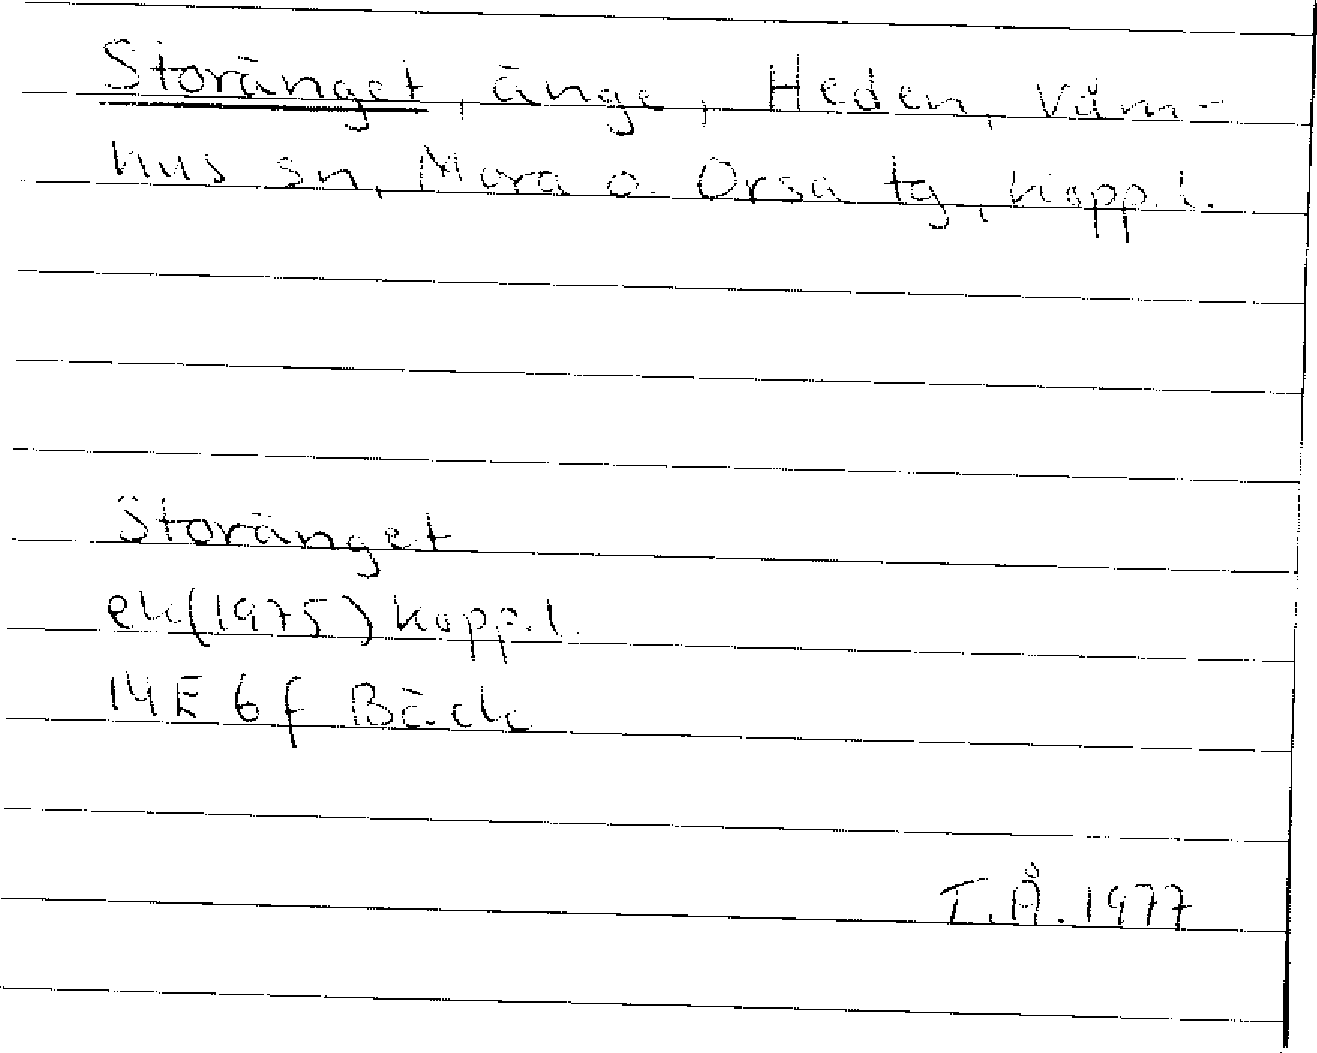 Storänget, änge, Heden, Våm-
hus sn, Mora o. Orsa tg, Kopp.l.
Storänget
ek(1975) Kopp.l.
14E 6f Bäck
T.Å. 1977